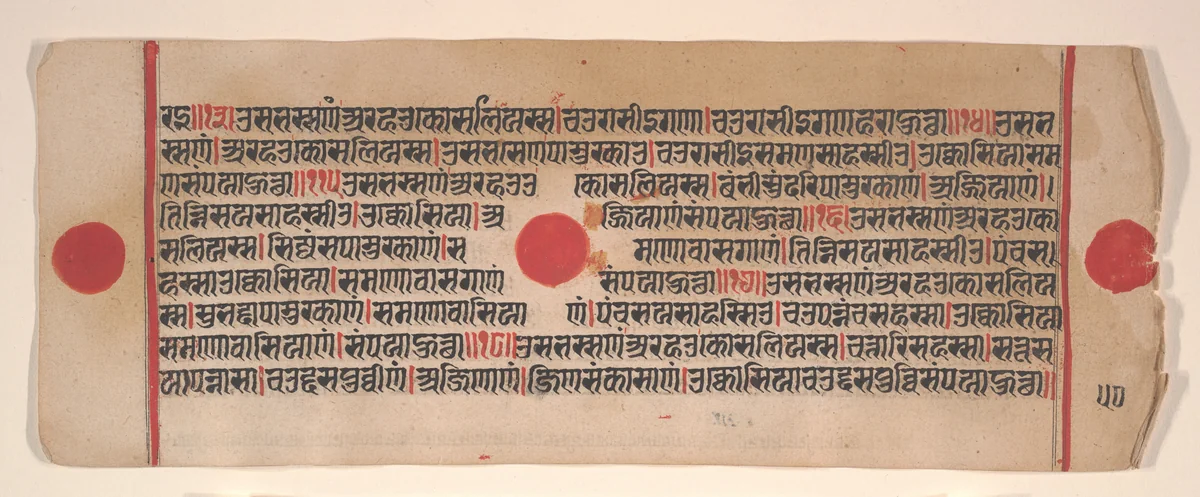 रइ॥१३॥उसभस्सणंअरहउकोसलिअस्स|चउरासीइगणा|चउरासीइगणहराहुत्था॥१४॥उसभ
स्सणं|अरहउकोसलिअस्स|उसभसेणपामुरकाउ|चउरासीइसमणसाहस्सीउ|उक्कोसिआसम
णसंपयाहुत्था॥१५॥उसभस्सणंअरहउ कोसलिअस्स|बंभीसुंदरिपामुरकाणं|अज्जिआणं|
तिन्निसयसाहस्सीउ|उक्कोसिआ|अ ज्जिआणंसंपयाहुत्था॥१६॥उसभस्सणंअरहउको
सलिअस्स|सिज्जंसपामुरकाणं|स मणोवासगाणं|तिन्निसयसाहस्सीउ|पंचस
हस्साउक्कोसिआ|समणोवासगाणं संपयाहुत्था॥१७॥उसभस्सणंअरहउकोसलिअ
स्स|सुभद्दापामुरकाणं|समणोवासिआ णं|पंचसयसाहस्सिउ|चउपन्नंचसहस्सा|उक्कोसिआ
समणोवासिआणं|संपयाहुत्था॥१८॥उसभस्सणंअरहउकोसलिअस्स|चत्तारिसहस्सा|सत्तस
यापन्नासा|चउद्दसपुव्वीणं|अजिणाणं|जिणसंकासाणं|उक्कोसिआचउद्दसपुव्विसंपयाहुत्था॥